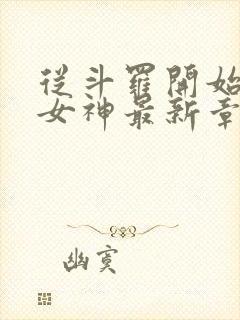 從斗羅開始
女神最新章
幽寞